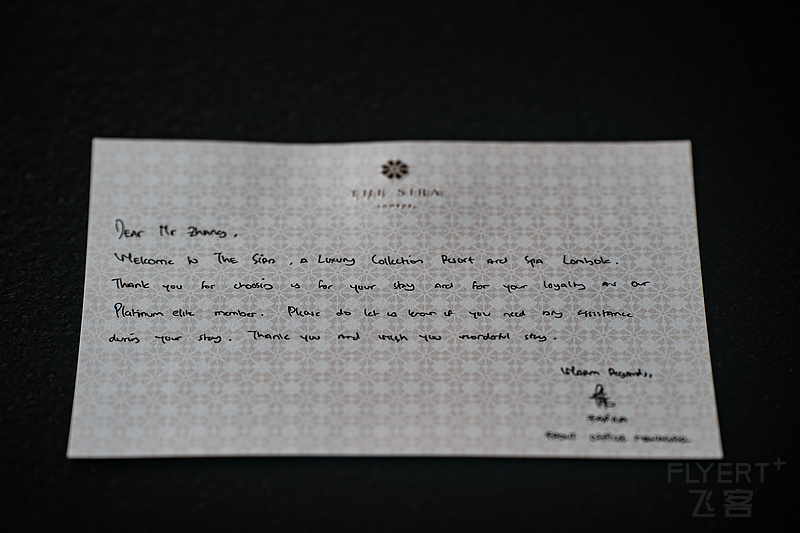 THE SIRA
LOMBOK
Dear Mr Zhang,
Welcome to The Sira, a Luxury Collection Resort and Spa Lombok.
Thank you for choosing us for your stay and for your loyalty as our
Platinum elite member. Please do let us know if you need any assistance
during your stay. Thank you and wish you wonderful stay.
Warm Regards,
Front Office Manager
FLYERT+
飞客